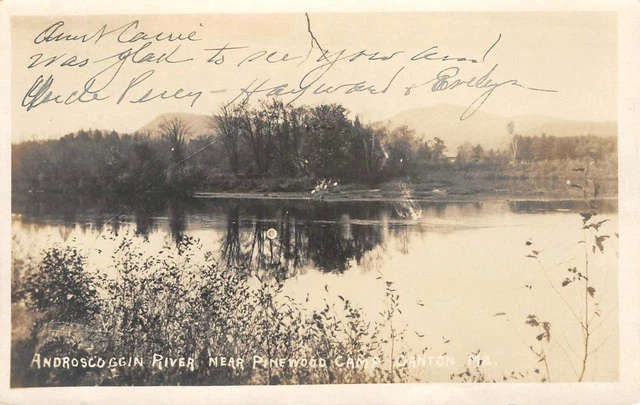 Aunt Carrie
was glad to see you and
Uncle Percy - Hayward & Evelyn
ANDROSCOGGIN RIVER NEAR PINEWOOD CAMP CANTON ME.